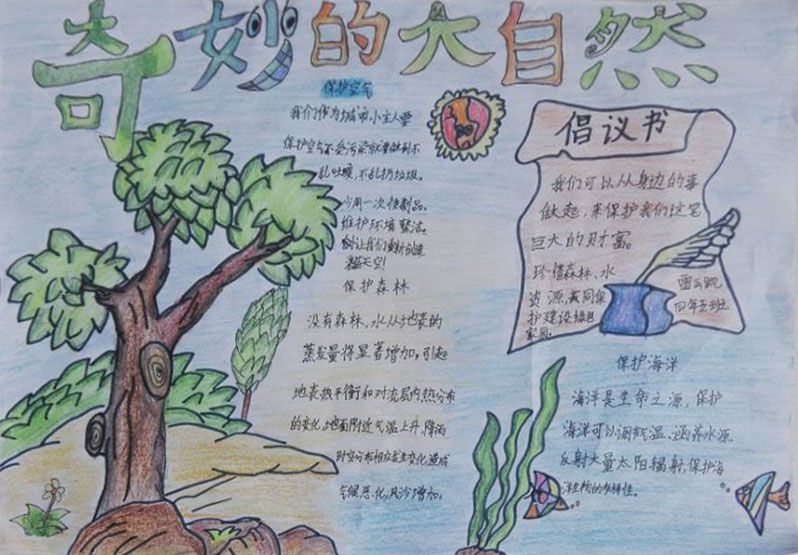 奇妙的大自然
保护空气
我们作为城市小主人要
保护空气不受污染就要做到不
乱吐痰,不乱扔垃圾。
少用一次性制品,
维护环境整洁。
让我们重新创造
蓝天空!
保护森林
没有森林,水从地表的
蒸发量将显著增加,引起
地表热平衡和对流层内热分布
的变化,地面附近气温上升,降雨
时空分布相应发生变化,造成
气候恶化,风沙增加。
倡议书
我们可以从身边的事
做起,来保护我们这笔
巨大的财富。
珍惜森林、水
资源,共同保
护建设绿色
家园。
四年五班
保护海洋
海洋是生命之源,保护
海洋可以调气温、涵养水源
反射大量太阳辐射,保护海
洋生物的多样性。